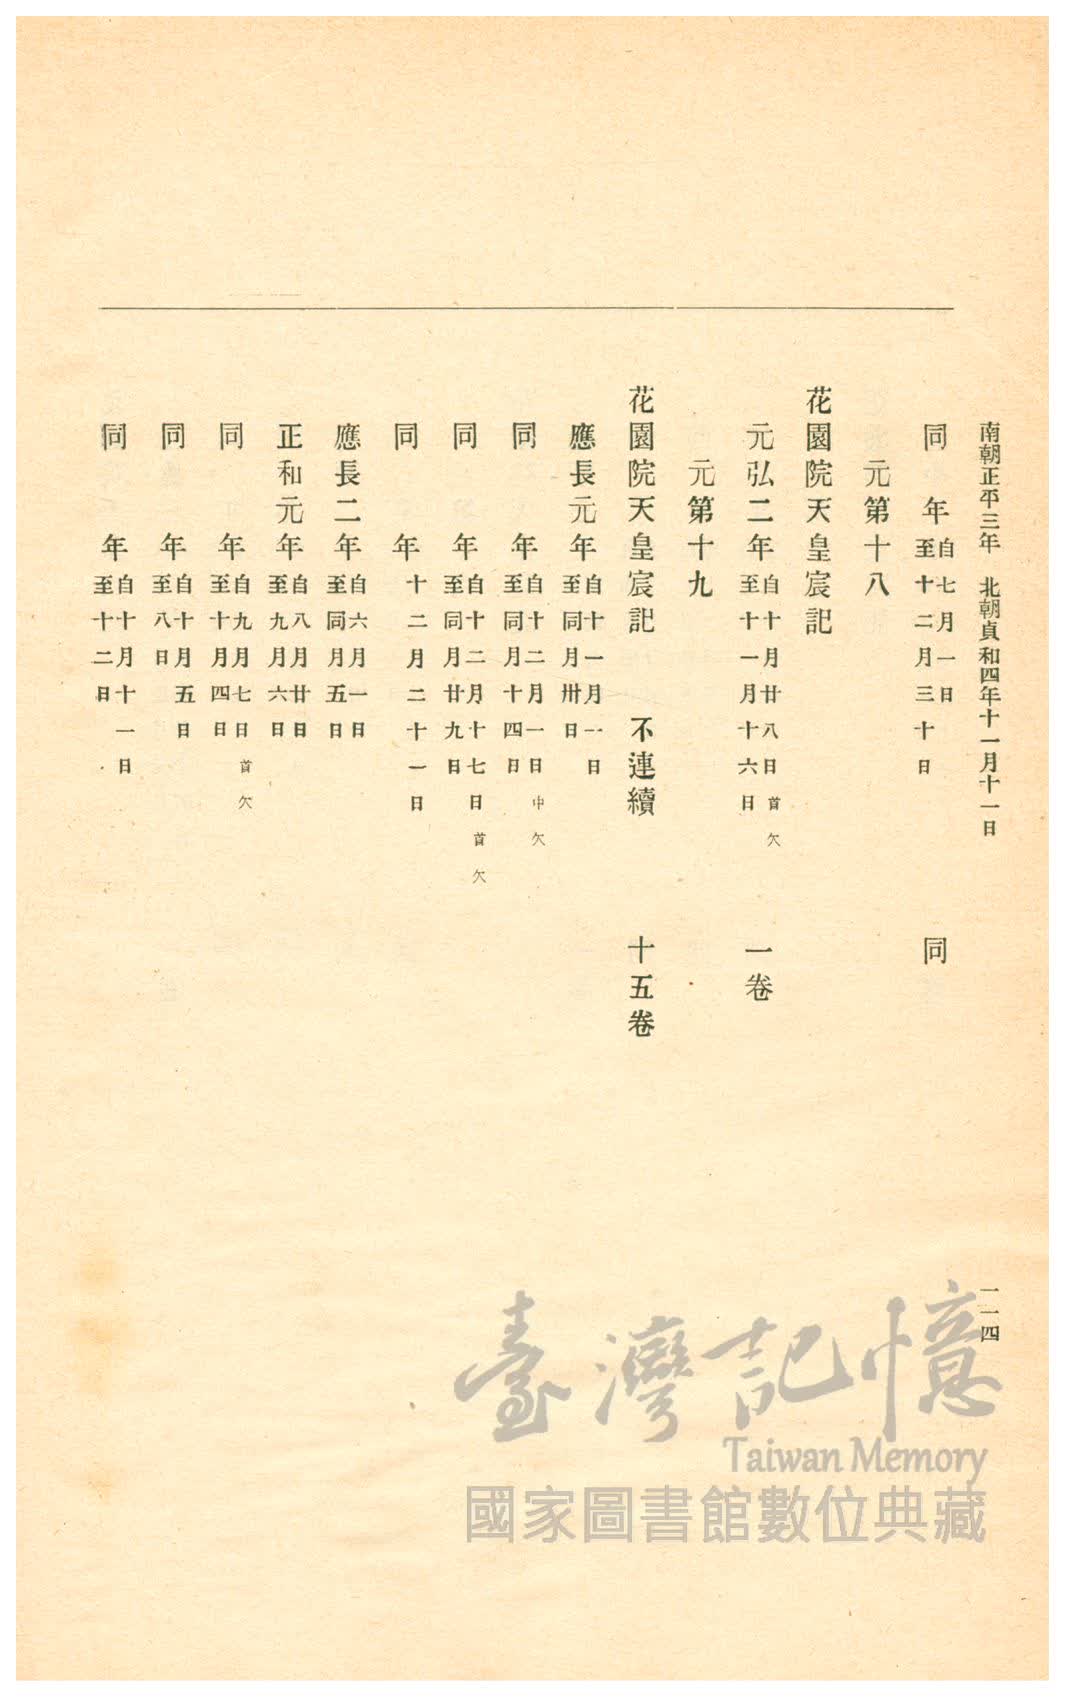 南朝正平三年 北朝貞和四年十一月十一日
一一四
同 年 自七月一日 至十二月三十日 同
元第十八
花園院天皇宸記
元弘二年 自十月廿八日 首欠 至十一月十六日 一卷
元第十九
花園院天皇宸記 不連續 十五卷
應長元年 自十一月一日 至同月卅日
同 年 自十二月一日 中欠 至同月十四日
同 年 自十二月十七日 首欠 至同月廿九日
同 年 十二月二十一日
應長二年 自六月一日 至同月五日
正和元年 自八月廿日 至九月六日
同 年 自九月七日 首欠 至十月四日
同 年 自十月五日 至八日
同 年 自十月十一日 至十二日
臺灣記憶
Taiwan Memory
國家圖書館數位典藏